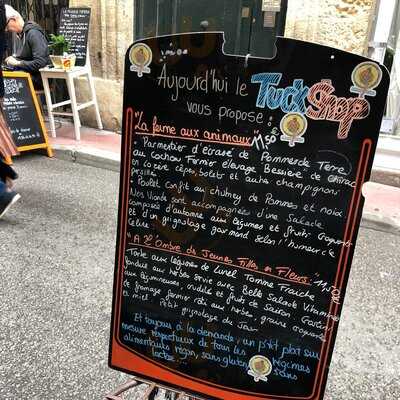 Aujourd'hui le
Tuck Shop
vous propose :
"La ferme aux animaux" 11,50€
"Parmentier d'écrasé de Pomme de Terre
au Cochon Fermier élevage Bessière de Chirac
en Lozère cèpes, bolets et autre champignons
persillé
"Poulet confit au chutney de Pommes et noix
Nos Viande sont accompagnées d'une Salade
composée d'automne aux légumes et fruits croquants
et d'un grignotage gourmand selon l'humeur de
Céline
"A l'Ombre de Jeunes Filles en Fleurs" 11,50
Tarte aux légumes de Lunel Tomme Fraîche
fondue aux herbes servie avec Belle Salade Vitaminée
de légumes, crudité et fruits de Saison
de fromage fermier rôti aux herbes, graine croquante
et miel Petit grignotage du Jour
Et toujours à la demande, un p'tit plat sur
mesure respectueux de tous les régimes
alimentaires végan, sans gluten sans
lactose ...